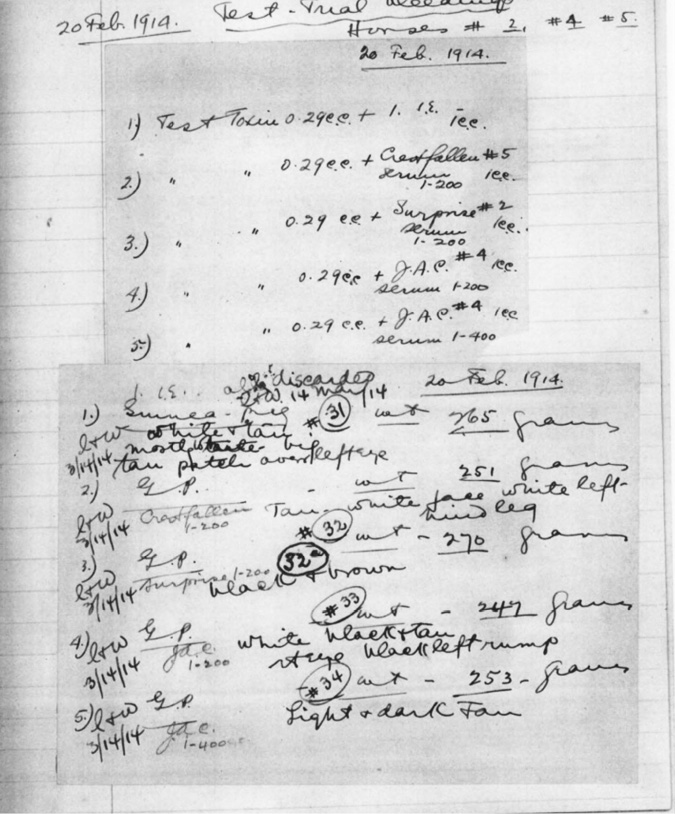 20 Feb. 1914. Test-Trial Bleedings
Horses # 2, #4 #5.
20 Feb. 1914.
1) Test Toxin 0.29 c.c. + 1. I.E. 1 c.c.
2.) " " 0.29 c.c. + Crestfallen #5
serum 1 c.c.
1-200
3.) " " 0.29 c.c. + Surprise #2
serum 1 c.c.
1-200
4.) " " 0.29 c.c. + J.A.C. #4 1 c.c.
serum 1-200
5.) " " 0.29 c.c. + J.A.C. #4 1 cc
serum 1-400
1. I.E. discarded
l+w. 14 Mar/14 20 Feb. 1914.
1.) Guinea-Pig #31 wt 265 grams
l+w white + tan
3/14/14 mostly white big
tan patch over left eye
2.) G.P. - wt 251 grams
l+w Crestfallen Tan - white face white left-
3/14/14 1-200 hind leg
#32 wt - 270 grams
3.) G.P. 32a
l+w Surprise 1-200 black + brown
3/14/14
#33 wt - 247 grams
4.) l+w G.P. white black + tan
3/14/14 Jac. 1-200 eye black left rump
#34 wt - 253 - grams
5.) l+w G.P. Light + dark Tan
3/14/14 Jac.
1-400